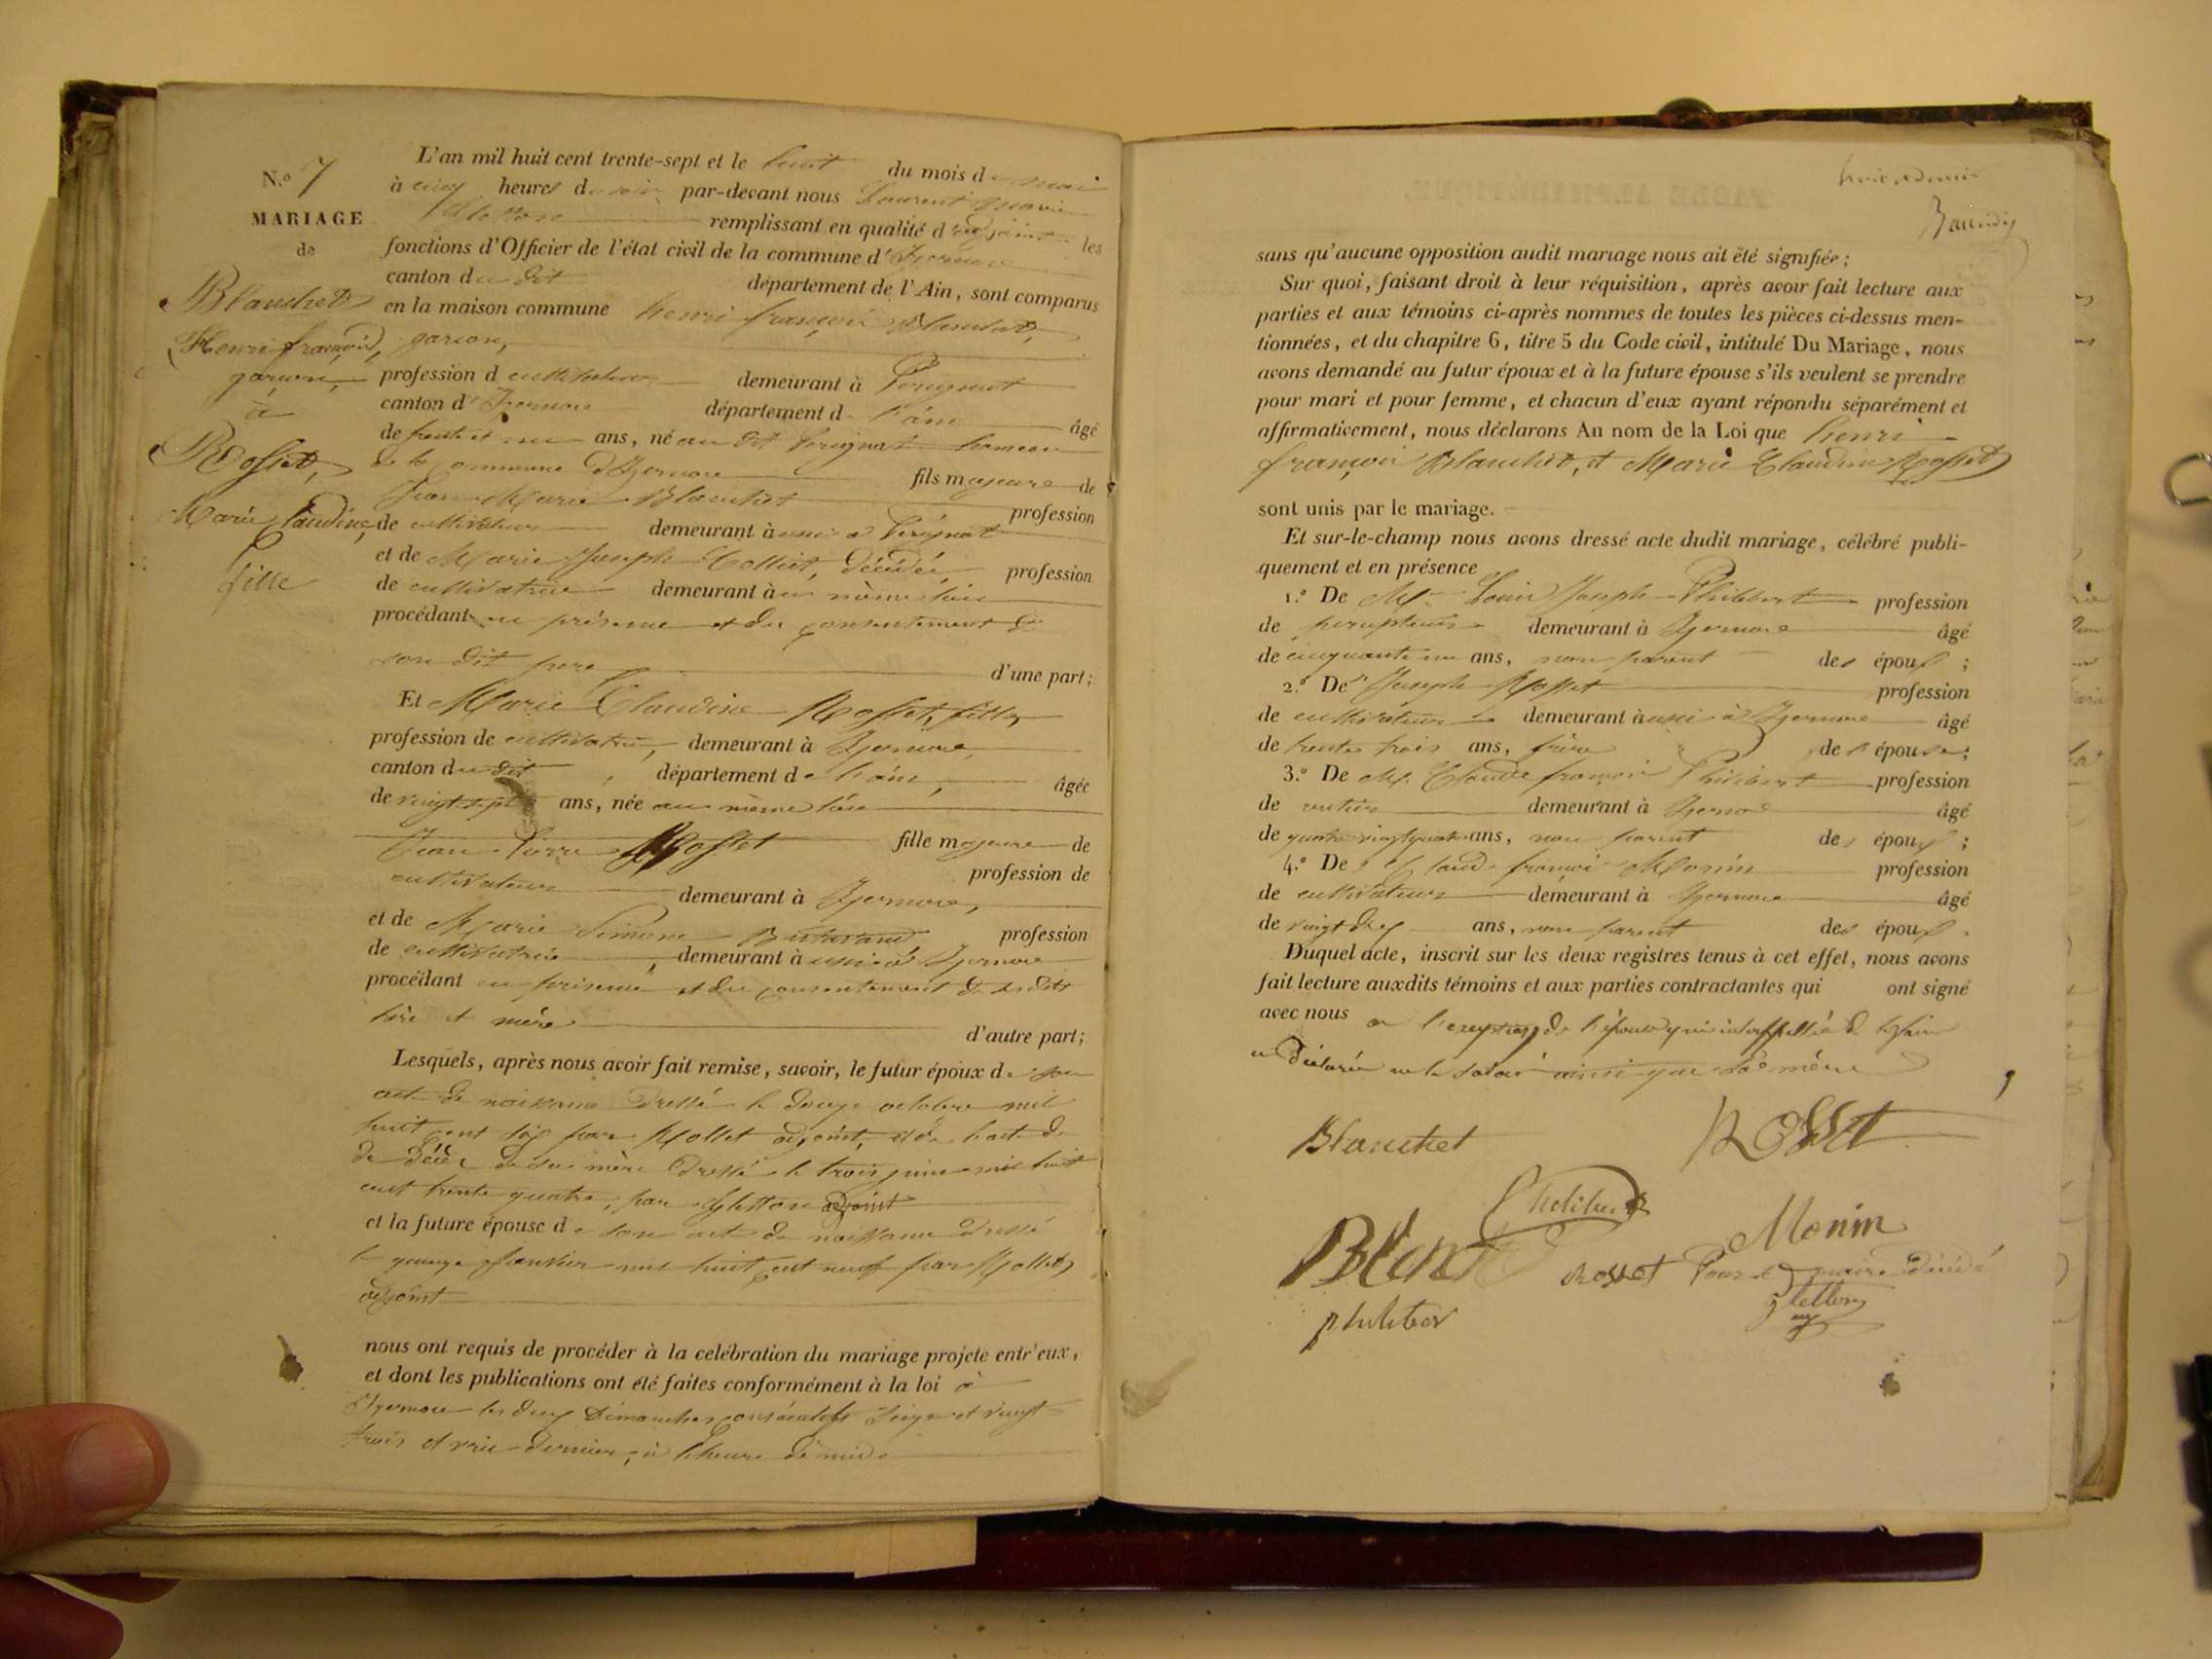 N.º 7
MARIAGE
de
Blanchet
Henri françois,
garçon,
à
Rosset,
Marie Claudine,
fille
L'an mil huit cent trente-sept et le huit du mois de mai
à cinq heures du soir par-devant nous Laurent Marie
remplissant en qualité d'adjoint les
fonctions d'Officier de l'état civil de la commune d'Izernore
canton du dit département de l'Ain, sont comparus
en la maison commune henri françois Blanchet,
garçon,
profession de cultivateur demeurant à Perignat
canton d'Izernore département de l'ain âgé
de trente et un ans, né au dit Perignat hameau
de la Commune d'Izernore fils majeure de
Jean Marie Blanchet profession
de cultivateur demeurant aussi à Perignat
et de Marie Joseph Colliet, décédée, profession
de cultivatrice demeurant au même lieu
procédant en présence et du consentement de
son dit père d'une part;
Et Marie Claudine Rosset, fille,
profession de cultivatrice, demeurant à Izernore,
canton du dit, département de l'ain, âgée
de vingt sept ans, née au même lieu
Jean Pierre Rosset fille majeure de
cultivateur profession de
demeurant à Izernore,
et de Marie Simone profession
de cultivatrice, demeurant aussi à Izernore
procédant en présence et du consentement de ses dits
père et mère d'autre part;
Lesquels, après nous avoir fait remise, savoir, le futur époux de son
act de naissance dressé le douze octobre mil
huit cent six par Mollet adjoint, et de l'acte de
de décès de sa mère dressé le trois juin mil huit
cent trente quatre, par adjoint
et la future épouse de son act de naissance dressé
le quinze Janvier mil huit cent neuf par Mollet,
adjoint
nous ont requis de procéder à la celébration du mariage projeté entr'eux,
et dont les publications ont été faites conformément à la loi à
Izernore les deux Dimanches consécutifs seize et vingt
trois avril dernier, à l'heure de midi
sans qu'aucune opposition audit mariage nous ait été signifiée;
Sur quoi, faisant droit à leur réquisition, après avoir fait lecture aux
parties et aux témoins ci-après nommes de toutes les pièces ci-dessus men-
tionnées, et du chapitre 6, titre 5 du Code civil, intitulé Du Mariage, nous
avons demandé au futur époux et à la future épouse s'ils veulent se prendre
pour mari et pour femme, et chacun d'eux ayant répondu séparément et
affirmativement, nous déclarons Au nom de la Loi que henri
françois Blanchet, et Marie Claudine Rosset
sont unis par le mariage.
Et sur-le-champ nous avons dressé acte dudit mariage, célébré publi-
quement et en présence
1.º De Mr. Louis Joseph Philibert profession
de percepteur demeurant à Izernore âgé
de cinquante un ans, non parent des époux;
2.º De Joseph Rosset profession
de cultivateur demeurant aussi à Izernore âgé
de trente trois ans, frère de l'épouse;
3.º De Mr. Claude françois Philibert profession
de rentier demeurant à Izernore âgé
de quatre vingt quatre ans, non parent des époux;
4.º De Claude françois Monin profession
de cultivateur demeurant à Izernore âgé
de vingt dix ans, non parent des époux.
Duquel acte, inscrit sur les deux registres tenus à cet effet, nous avons
fait lecture auxdits témoins et aux parties contractantes qui ont signé
avec nous à l'exception de l'épouse qui interpellée de le faire
a déclaré ne le savoir ainsi que sa mère
Blanchet
Rosset
Philibert
Monin
Rosset
Pour le maire décédé
philiber